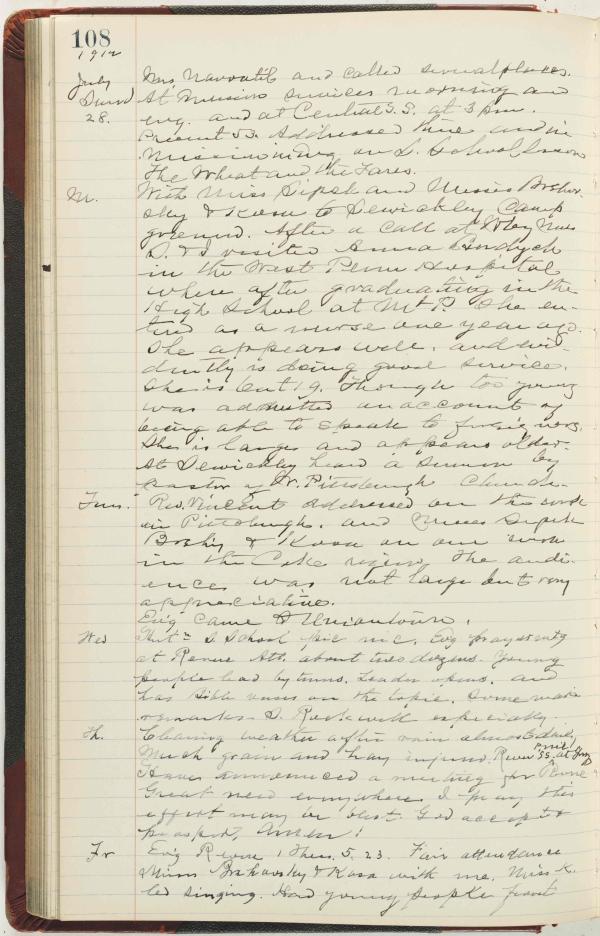 108
1912
July Mrs. Navratil and called several places.
Sund At Mission services morning and
28. evg. and at Central S.S. at 3 pm.
Present 53. Addressed there and in
on S. School lesson
The Wheat and the Tares.
M. With Miss Sipek and Misses
& Kosa to Sewickley Camp
ground. After a call at Miss
S. & I visited Anna
in the West Penn Hospital
where after graduating in the
High School at Mt. P. she en-
tered as a nurse one year ago.
She appears well, and evi-
dently is doing good service.
She is but 19. Though too young
was admitted on account of
being able to speak to foreigners.
She is large and appears older.
At Sewickley heard a sermon by
pastor of Pittsburgh Church.
Tues. Rev. Vincent addressed on the work
in Pittsburgh, and Misses Sipek
& Kosa on our work
in the Coke region. The audi-
ences was not large but very
appreciative.
Ev'g came to Uniontown.
Wed S. School pic nic. Ev'g pray meetg
at Revere Att. about two dozens. Young
people lead by turns. Leader opens, and
has Bible verses on the topic. Some make
remarks. S. especially.
Th. Clearing weather after rain almost daily
Much grain and hay injured. Revere SS. at
Have announced a meeting for Revere
Great need everywhere. I pray this
effort may be blest. God accept &
prosper, Amen!
Fr Ev'g Revere 1 Thess. 5, 23. Fair attendance
Misses & Kosa with me. Miss K.
led singing. Had young people front